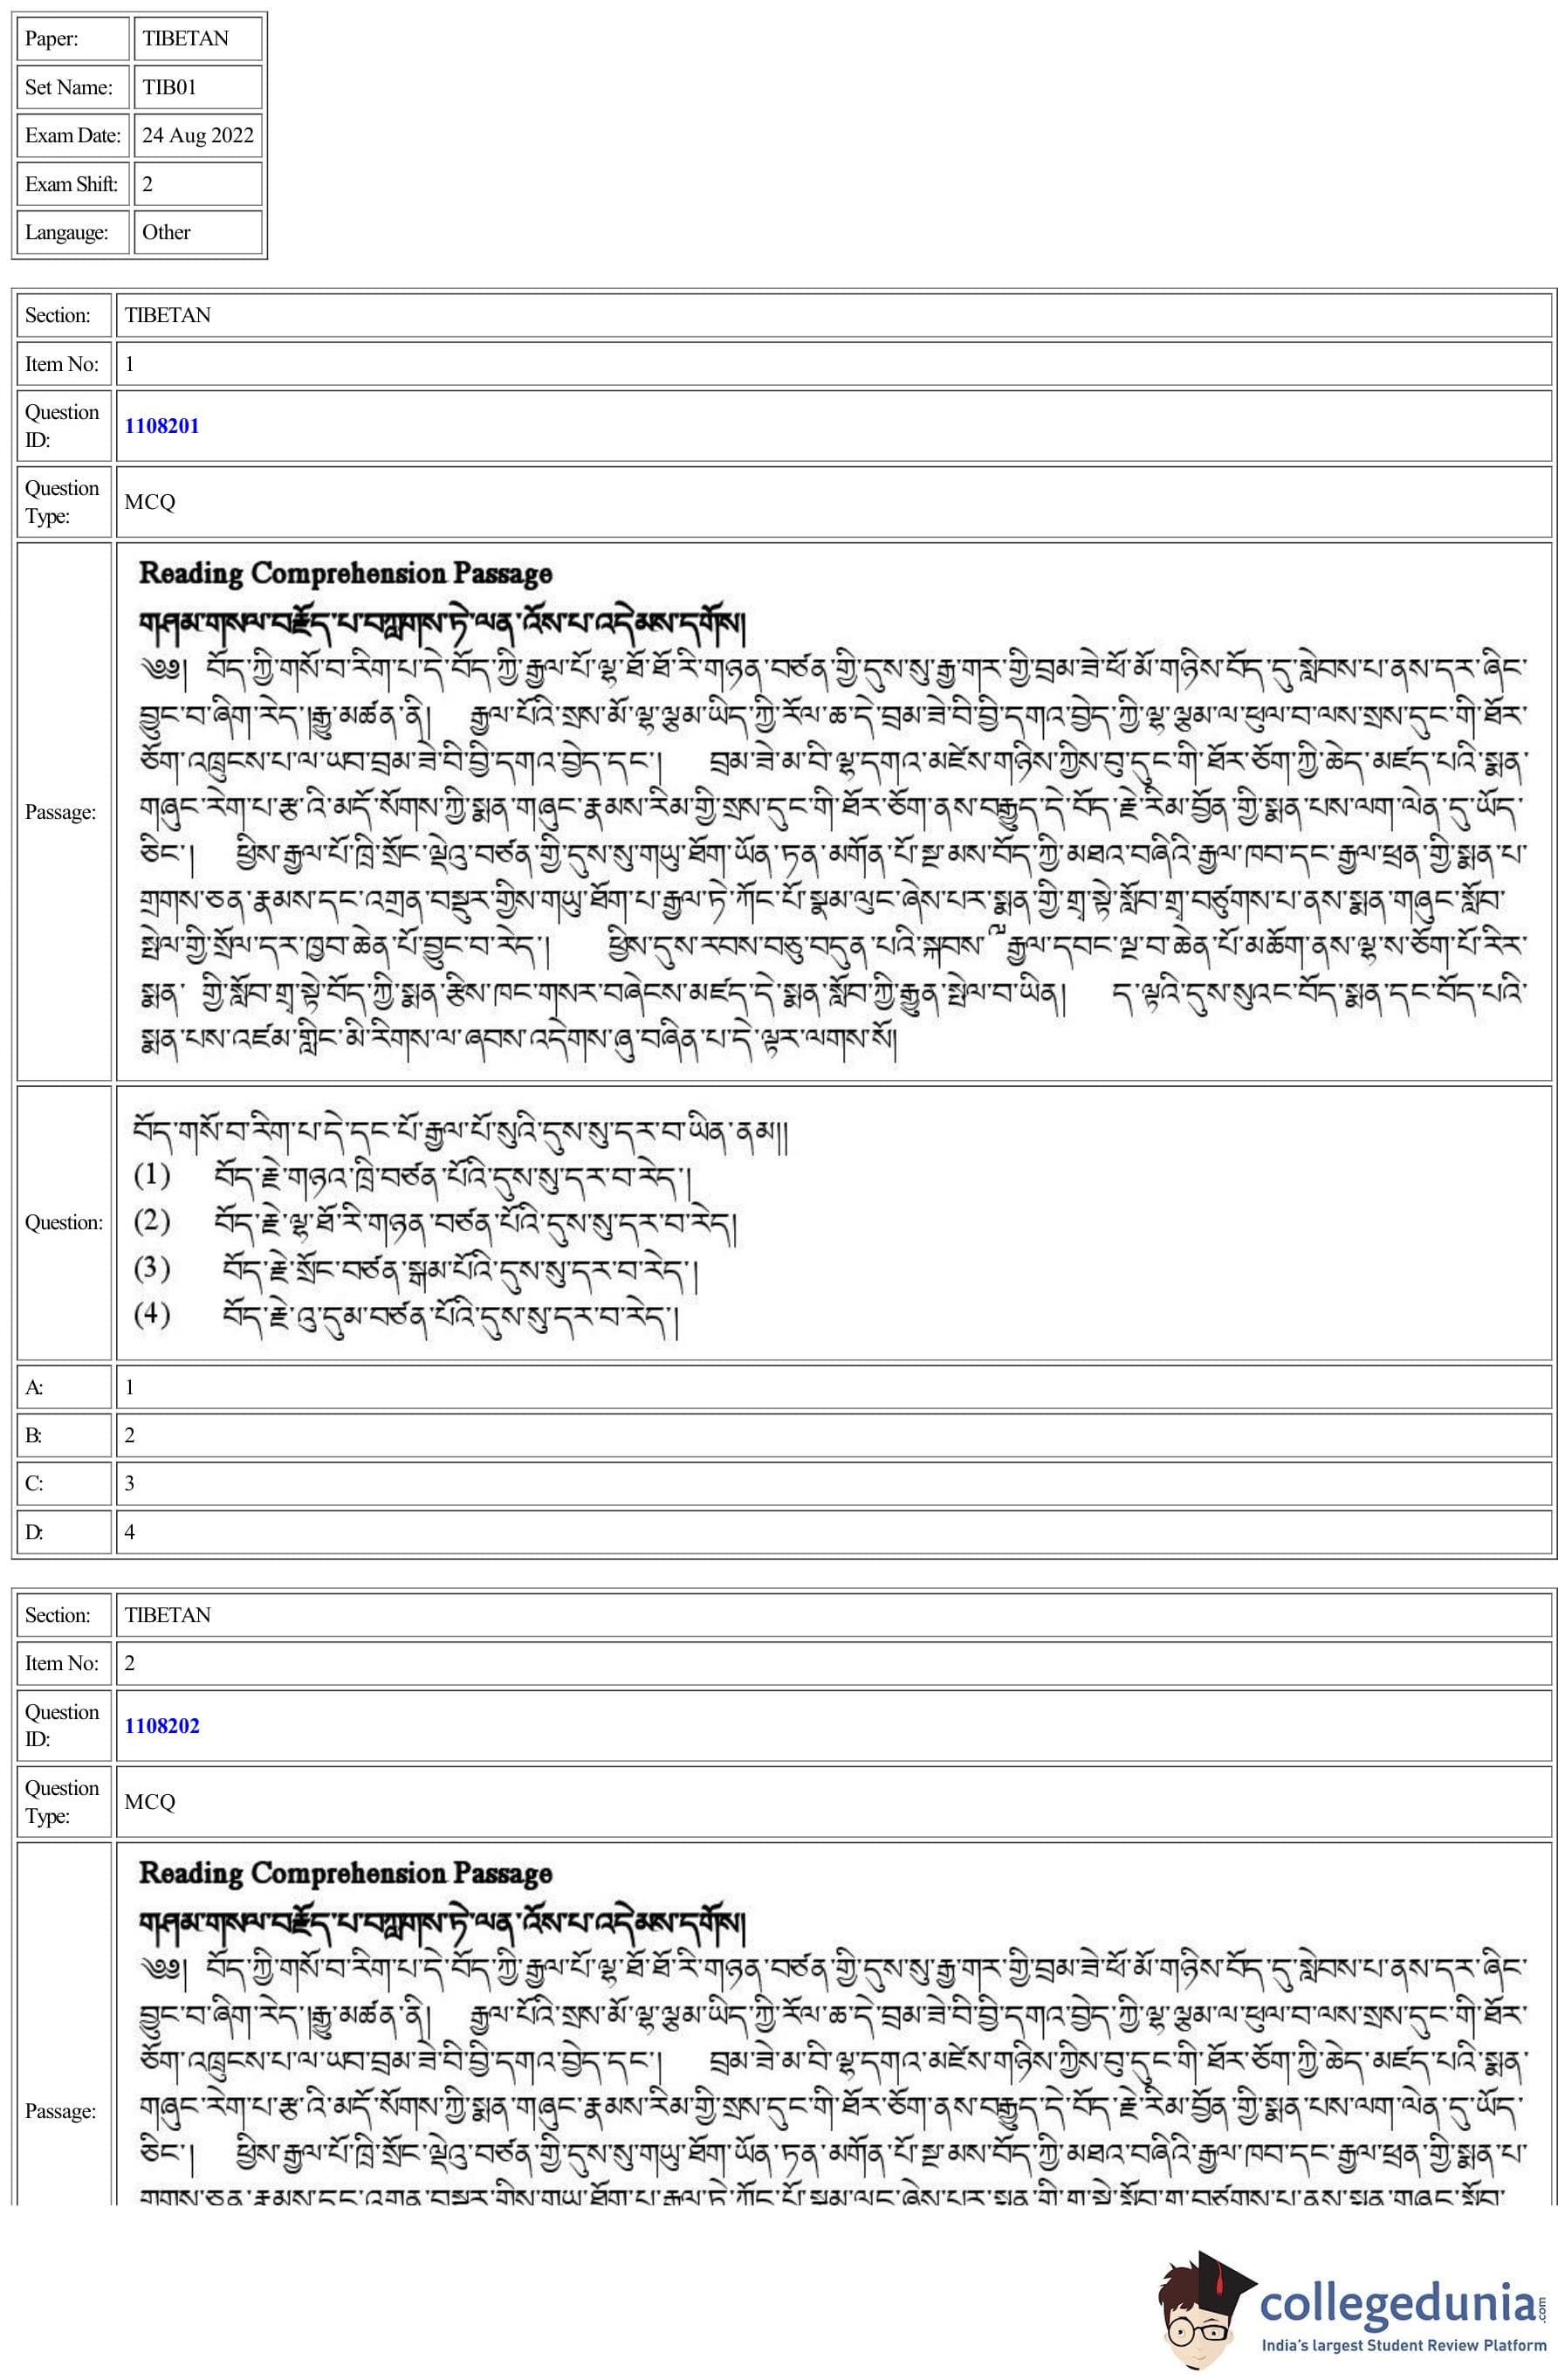 Paper: TIBETAN
Set Name: TIB01
Exam Date: 24 Aug 2022
Exam Shift: 2
Langauge: Other
Section: TIBETAN
Item No: 1
Question ID: 1108201
Question Type: MCQ
Passage:
Reading Comprehension Passage
གཤམ་གསལ་བརྗོད་པ་བཀླགས་ཏེ་ལན་འོས་པ་འདེམས་དགོས།
༄༅། བོད་ཀྱི་གསོ་བ་རིག་པ་དེ་བོད་ཀྱི་རྒྱལ་པོ་ལྷ་ཐོ་ཐོ་རི་གཉན་བཙན་གྱི་དུས་སུ་རྒྱ་གར་གྱི་བྲམ་ཟེ་ཕོ་མོ་གཉིས་བོད་དུ་སླེབས་པ་ནས་དར་ཞིང་
བྱུང་བ་ཞིག་རེད་།རྒྱུ་མཚན་ནི། རྒྱལ་པོའི་སྲས་མོ་ལྷ་ལྕམ་ཡིད་ཀྱི་རོལ་ཆ་དེ་བྲམ་ཟེ་བི་བྱི་དགའ་བྱེད་ཀྱི་ལྷ་ལྕམ་ལ་ཕུལ་བ་ལས་སྲས་དུང་གི་ཐོར་
ཅོག་འཁྲུངས་པ་ལ་ཡབ་བྲམ་ཟེ་བི་བྱི་དགའ་བྱེད་དང་། བྲམ་ཟེ་མ་བི་ལྷ་དགའ་མཛེས་གཉིས་ཀྱིས་བུ་དུང་གི་ཐོར་ཅོག་ཀྱི་ཆེད་མཛད་པའི་སྨན་
གཞུང་རེག་པ་རྩ་འི་མདོ་སོགས་ཀྱི་སྨན་གཞུང་རྣམས་རིམ་གྱི་སྲས་དུང་གི་ཐོར་ཅོག་ནས་བརྒྱུད་དེ་བོད་རྗེ་རིམ་བྱོན་གྱི་སྨན་པས་ལག་ལེན་དུ་ཡོད་
ཅིང་། ཕྱིས་རྒྱལ་པོ་ཁྲི་སྲོང་ལྡེའུ་བཙན་གྱི་དུས་སུ་གཡུ་ཐོག་ཡོན་ཏན་མགོན་པོ་སྔ་མས་བོད་ཀྱི་མཐའ་བཞིའི་རྒྱལ་ཁབ་དང་རྒྱལ་ཕྲན་གྱི་སྨན་པ་
གྲགས་ཅན་རྣམས་དང་འགྲན་བསྡུར་གྱིས་གཡུ་ཐོག་པ་རྒྱལ་ཏེ་ཀོང་པོ་སྨན་ལུང་ཞེས་པར་སྨན་གྱི་གྲྭ་སྡེ་སློབ་གྲྭ་བཙུགས་པ་ནས་སྨན་གཞུང་སློབ་
སྤེལ་གྱི་སྲོལ་དར་ཁྱབ་ཆེན་པོ་བྱུང་བ་རེད་། ཕྱིས་དུས་རབས་བཅུ་བདུན་པའི་སྐབས་ ྋརྒྱལ་དབང་ལྔ་བ་ཆེན་པོ་མཆོག་ནས་ལྷ་ས་ཅོག་པོ་རིར་
སྨན་ གྱི་སློབ་གྲྭ་སྟེ་བོད་ཀྱི་སྨན་རྩིས་ཁང་གསར་བཞེངས་མཛད་དེ་སྨན་སློབ་ཀྱི་རྒྱུན་སྤེལ་བ་ཡིན། ད་ལྟའི་དུས་སུའང་བོད་སྨན་དང་བོད་པའི་
སྨན་པས་འཛམ་གླིང་མི་རིགས་ལ་ཞབས་འདེགས་ཞུ་བཞིན་པ་དེ་ལྟར་ལགས་སོ།
Question:
བོད་གསོ་བ་རིག་པ་དེ་དང་པོ་རྒྱལ་པོ་སུའི་དུས་སུ་དར་བ་ཡིན་ནམ།།
(1) བོད་རྗེ་གཉའ་ཁྲི་བཙན་པོའི་དུས་སུ་དར་བ་རེད་།
(2) བོད་རྗེ་ལྷ་ཐོ་རི་གཉན་བཙན་པོའི་དུས་སུ་དར་བ་རེད།
(3) བོད་རྗེ་སྲོང་བཙན་སྒམ་པོའི་དུས་སུ་དར་བ་རེད་།
(4) བོད་རྗེ་འུ་དུམ་བཙན་པོའི་དུས་སུ་དར་བ་རེད་།
A: 1
B: 2
C: 3
D: 4
Section: TIBETAN
Item No: 2
Question ID: 1108202
Question Type: MCQ
Passage:
Reading Comprehension Passage
གཤམ་གསལ་བརྗོད་པ་བཀླགས་ཏེ་ལན་འོས་པ་འདེམས་དགོས།
༄༅། བོད་ཀྱི་གསོ་བ་རིག་པ་དེ་བོད་ཀྱི་རྒྱལ་པོ་ལྷ་ཐོ་ཐོ་རི་གཉན་བཙན་གྱི་དུས་སུ་རྒྱ་གར་གྱི་བྲམ་ཟེ་ཕོ་མོ་གཉིས་བོད་དུ་སླེབས་པ་ནས་དར་ཞིང་
བྱུང་བ་ཞིག་རེད་།རྒྱུ་མཚན་ནི། རྒྱལ་པོའི་སྲས་མོ་ལྷ་ལྕམ་ཡིད་ཀྱི་རོལ་ཆ་དེ་བྲམ་ཟེ་བི་བྱི་དགའ་བྱེད་ཀྱི་ལྷ་ལྕམ་ལ་ཕུལ་བ་ལས་སྲས་དུང་གི་ཐོར་
ཅོག་འཁྲུངས་པ་ལ་ཡབ་བྲམ་ཟེ་བི་བྱི་དགའ་བྱེད་དང་། བྲམ་ཟེ་མ་བི་ལྷ་དགའ་མཛེས་གཉིས་ཀྱིས་བུ་དུང་གི་ཐོར་ཅོག་ཀྱི་ཆེད་མཛད་པའི་སྨན་
གཞུང་རེག་པ་རྩ་འི་མདོ་སོགས་ཀྱི་སྨན་གཞུང་རྣམས་རིམ་གྱི་སྲས་དུང་གི་ཐོར་ཅོག་ནས་བརྒྱུད་དེ་བོད་རྗེ་རིམ་བྱོན་གྱི་སྨན་པས་ལག་ལེན་དུ་ཡོད་
ཅིང་། ཕྱིས་རྒྱལ་པོ་ཁྲི་སྲོང་ལྡེའུ་བཙན་གྱི་དུས་སུ་གཡུ་ཐོག་ཡོན་ཏན་མགོན་པོ་སྔ་མས་བོད་ཀྱི་མཐའ་བཞིའི་རྒྱལ་ཁབ་དང་རྒྱལ་ཕྲན་གྱི་སྨན་པ་
collegedunia.com
India's largest Student Review Platform